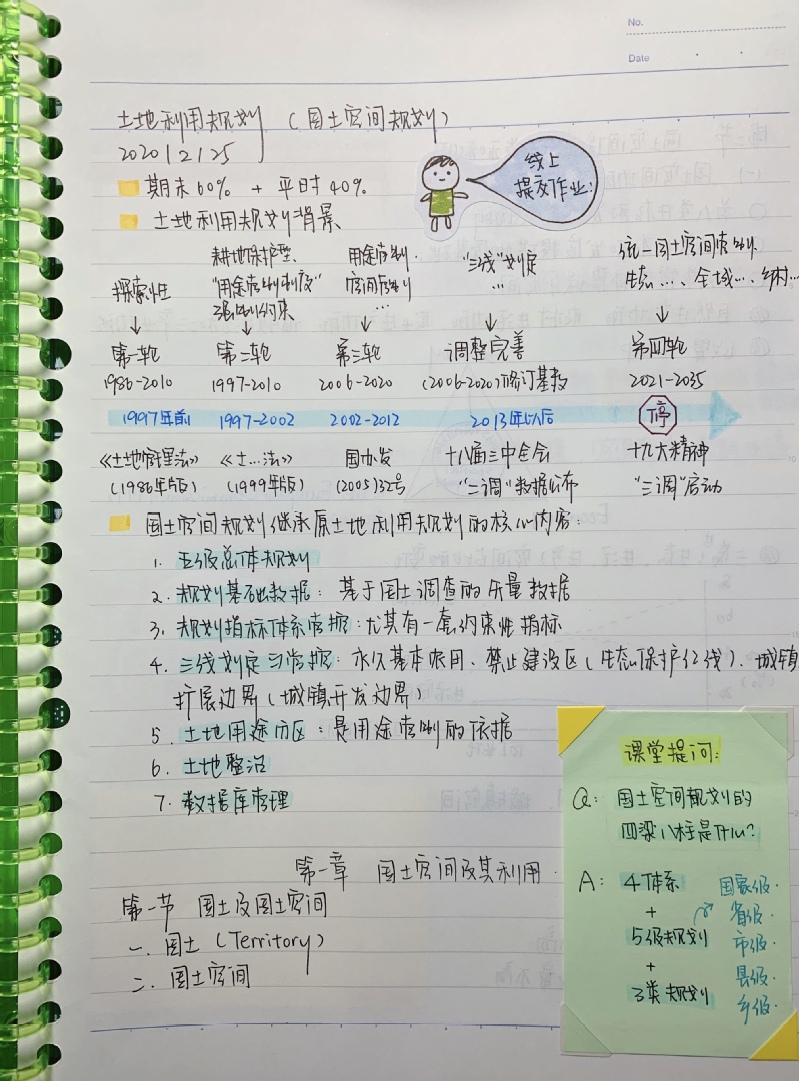 No.
Date
土地利用规划 （国土空间规划）
2020/2/25
线上
提交作业！
期末60% + 平时40%
土地利用规划背景
探索性
耕地保护型、
“用途管制制度”
强制约束
用途管制、
空间管制
...
“三线”划定
...
统一国土空间管制、
生态...、全域...、乡村...
第一轮
1986-2010
第二轮
1997-2010
第三轮
2006-2020
调整完善
(2006-2020)修订基数
第四轮
2021-2035
1997年前
1997-2002
2002-2012
2013年以后
停
《土地管理法》
(1986年版)
《土...法》
(1999年版)
国办发
(2005)32号
十八届三中全会
“二调”数据公布
十九大精神
“三调”启动
国土空间规划继承原土地利用规划的核心内容：
1. 五级总体规划
2. 规划基础数据：基于国土调查的矢量数据
3. 规划指标体系管控：尤其有一套约束性指标
4. 三线划定与管控：永久基本农田、禁止建设区(生态保护红线)、城镇
扩展边界(城镇开发边界
5. 土地用途分区：是用途管制的依据
6. 土地整治
7. 数据库管理
课堂提问：
Q：国土空间规划的
四梁八柱是什么？
A：4个体系
+
5级规划
+
3类规划
国家级、
省级、
市级、
县级、
乡级、
第一章 国土空间及其利用
第一节 国土及国土空间
一. 国土 (Territory)
二. 国土空间